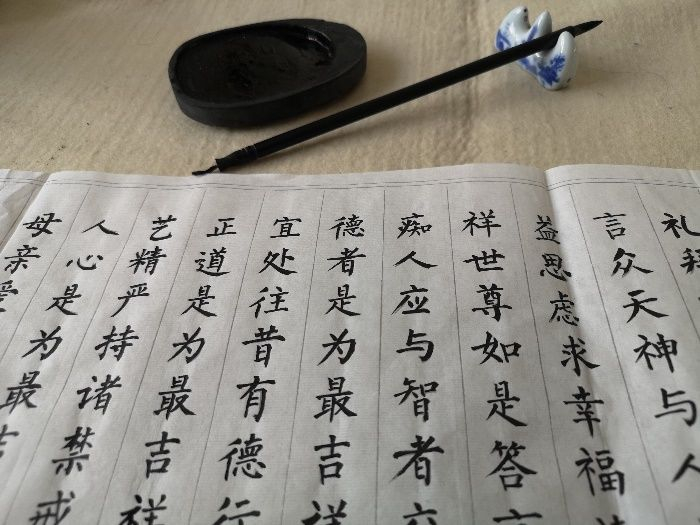 礼拜
言众天神与人
益思虑求幸福
祥世尊如是答
痴人应与智者
德者是为最吉祥
宜处往昔有德行
正道是为最吉祥
艺精严持诸禁戒
人心是为最吉
母亲爱